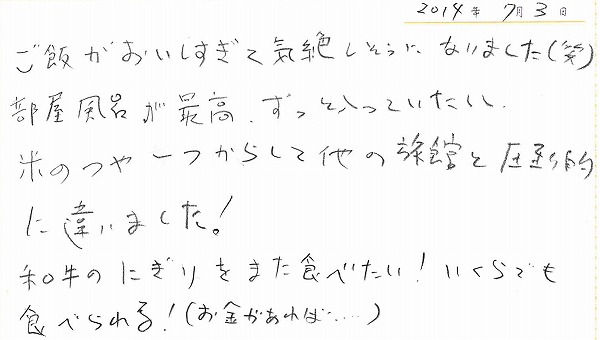 2014年 7月 3日
ご飯がおいしすぎて気絶しそうになりました(笑)
部屋風呂が最高、ずっと入っていたい。
米のつや一つからして他の旅館と圧倒的
に違いました!
和牛のにぎりをまた食べたい!いくらでも
食べられる!(お金があれば....)